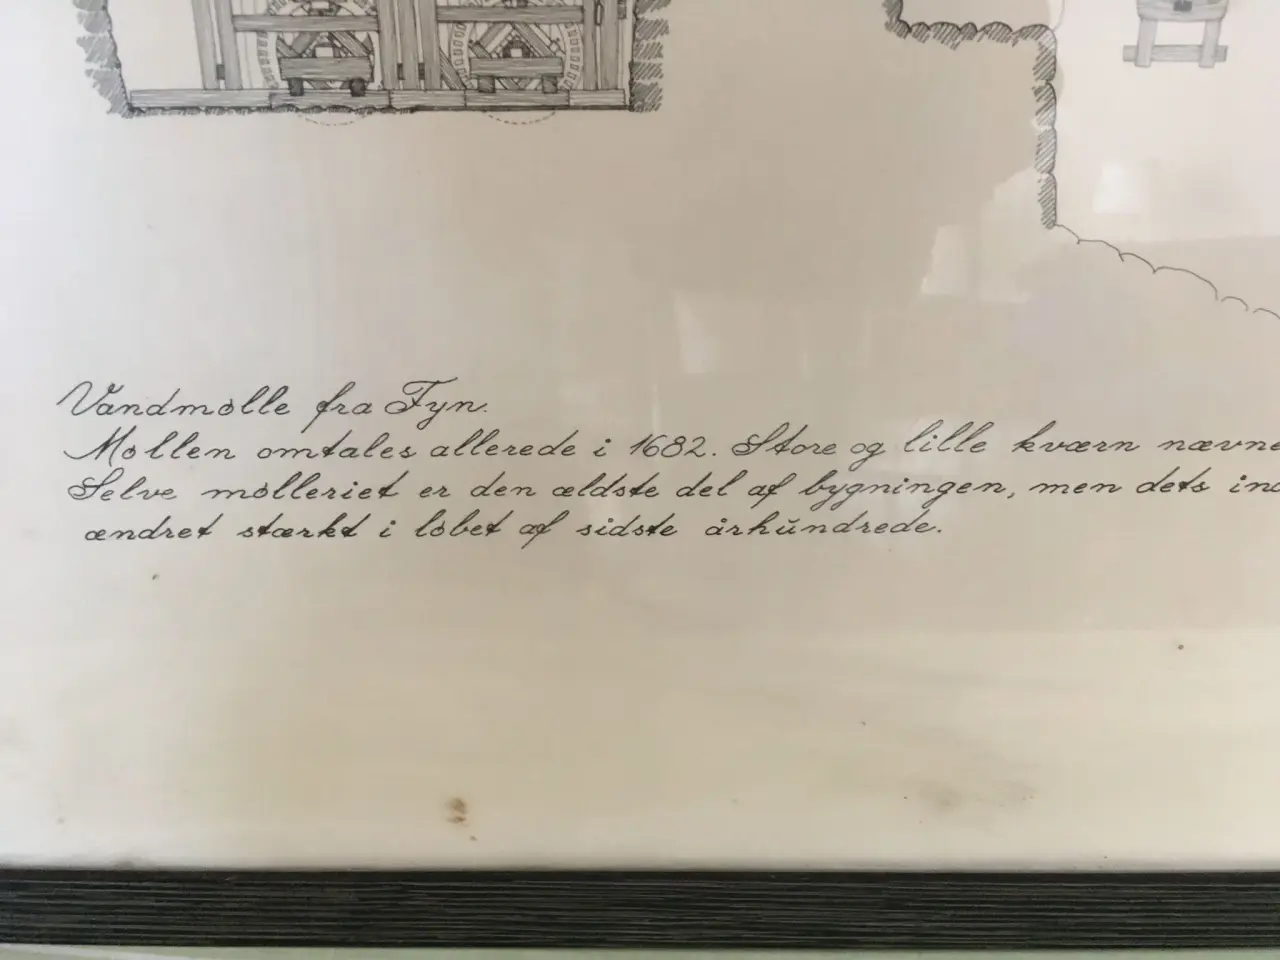 Vandmølle fra Fyn.
Møllen omtales allerede i 1682. Store og lille kværn nævne
Selve mølleriet er den ældste del af bygningen, men dets ind
ændret stærkt i løbet af sidste århundrede.